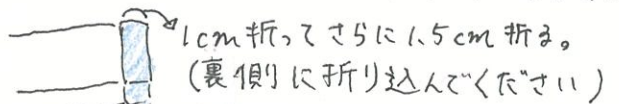 1cm折ってさらに1.5cm折る。
(裏側に折り込んでください)